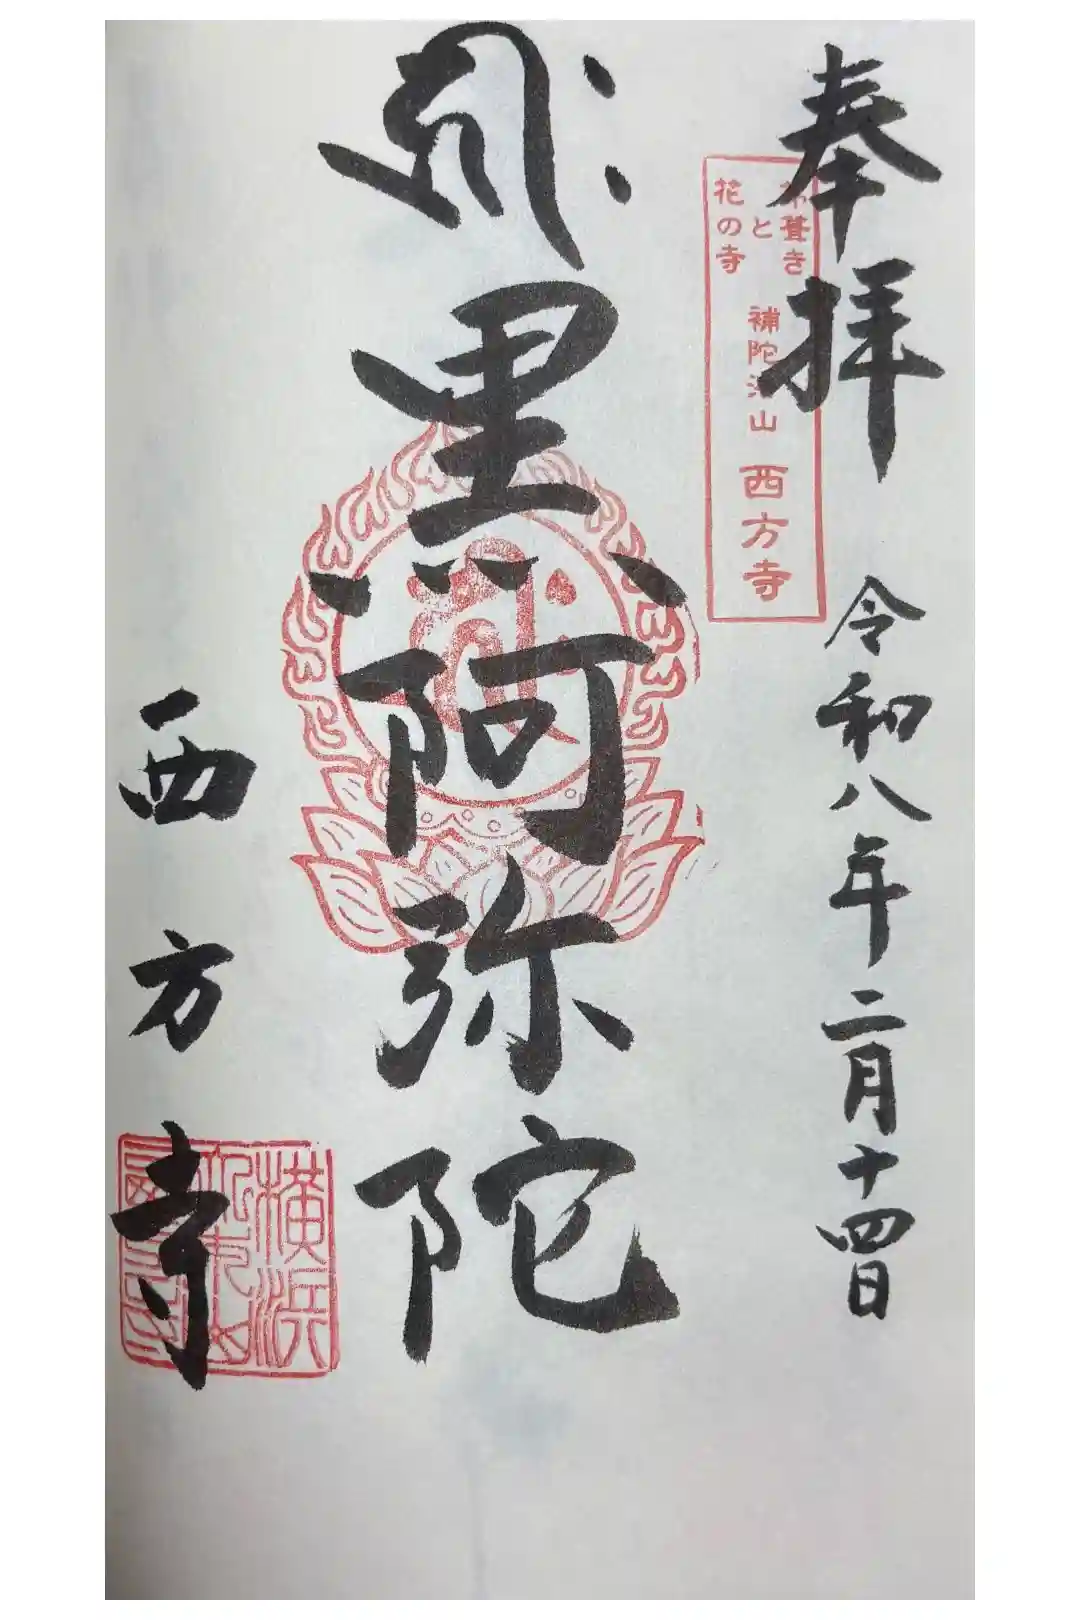 奉拝
令和八年二月十四日
葺き
と
花の寺
補陀洛山 西方寺
黒阿弥陀
西方寺
横浜